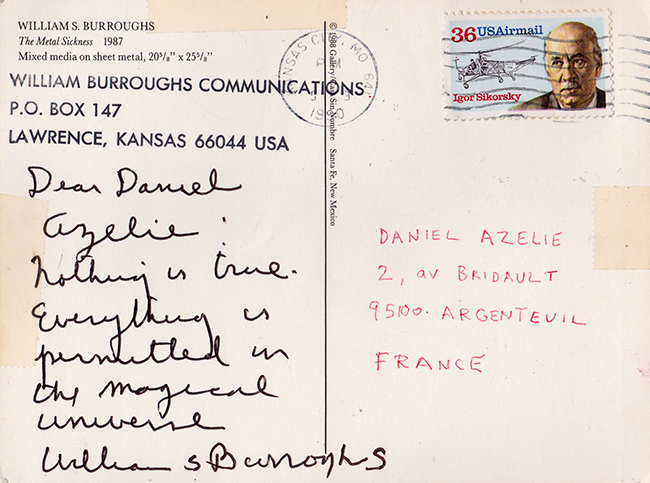 WILLIAM S. BURROUGHS
The Metal Sickness 1987
Mixed media on sheet metal, 20⅝" x 25⅝"
WILLIAM BURROUGHS COMMUNICATIONS
P.O. BOX 147
LAWRENCE, KANSAS 66044 USA
Dear Daniel
Azelie:
Nothing is true.
Everything is
permitted in
the magical
universe
William S Burroughs
© 1988 Gallery Casa Sin Nombre Santa Fe, New Mexico
KANSAS CITY, MO 641
PM
1990
36 USAirmail
Igor Sikorsky
DANIEL AZELIE
2, av BRIDAULT
95100. ARGENTEUIL
FRANCE